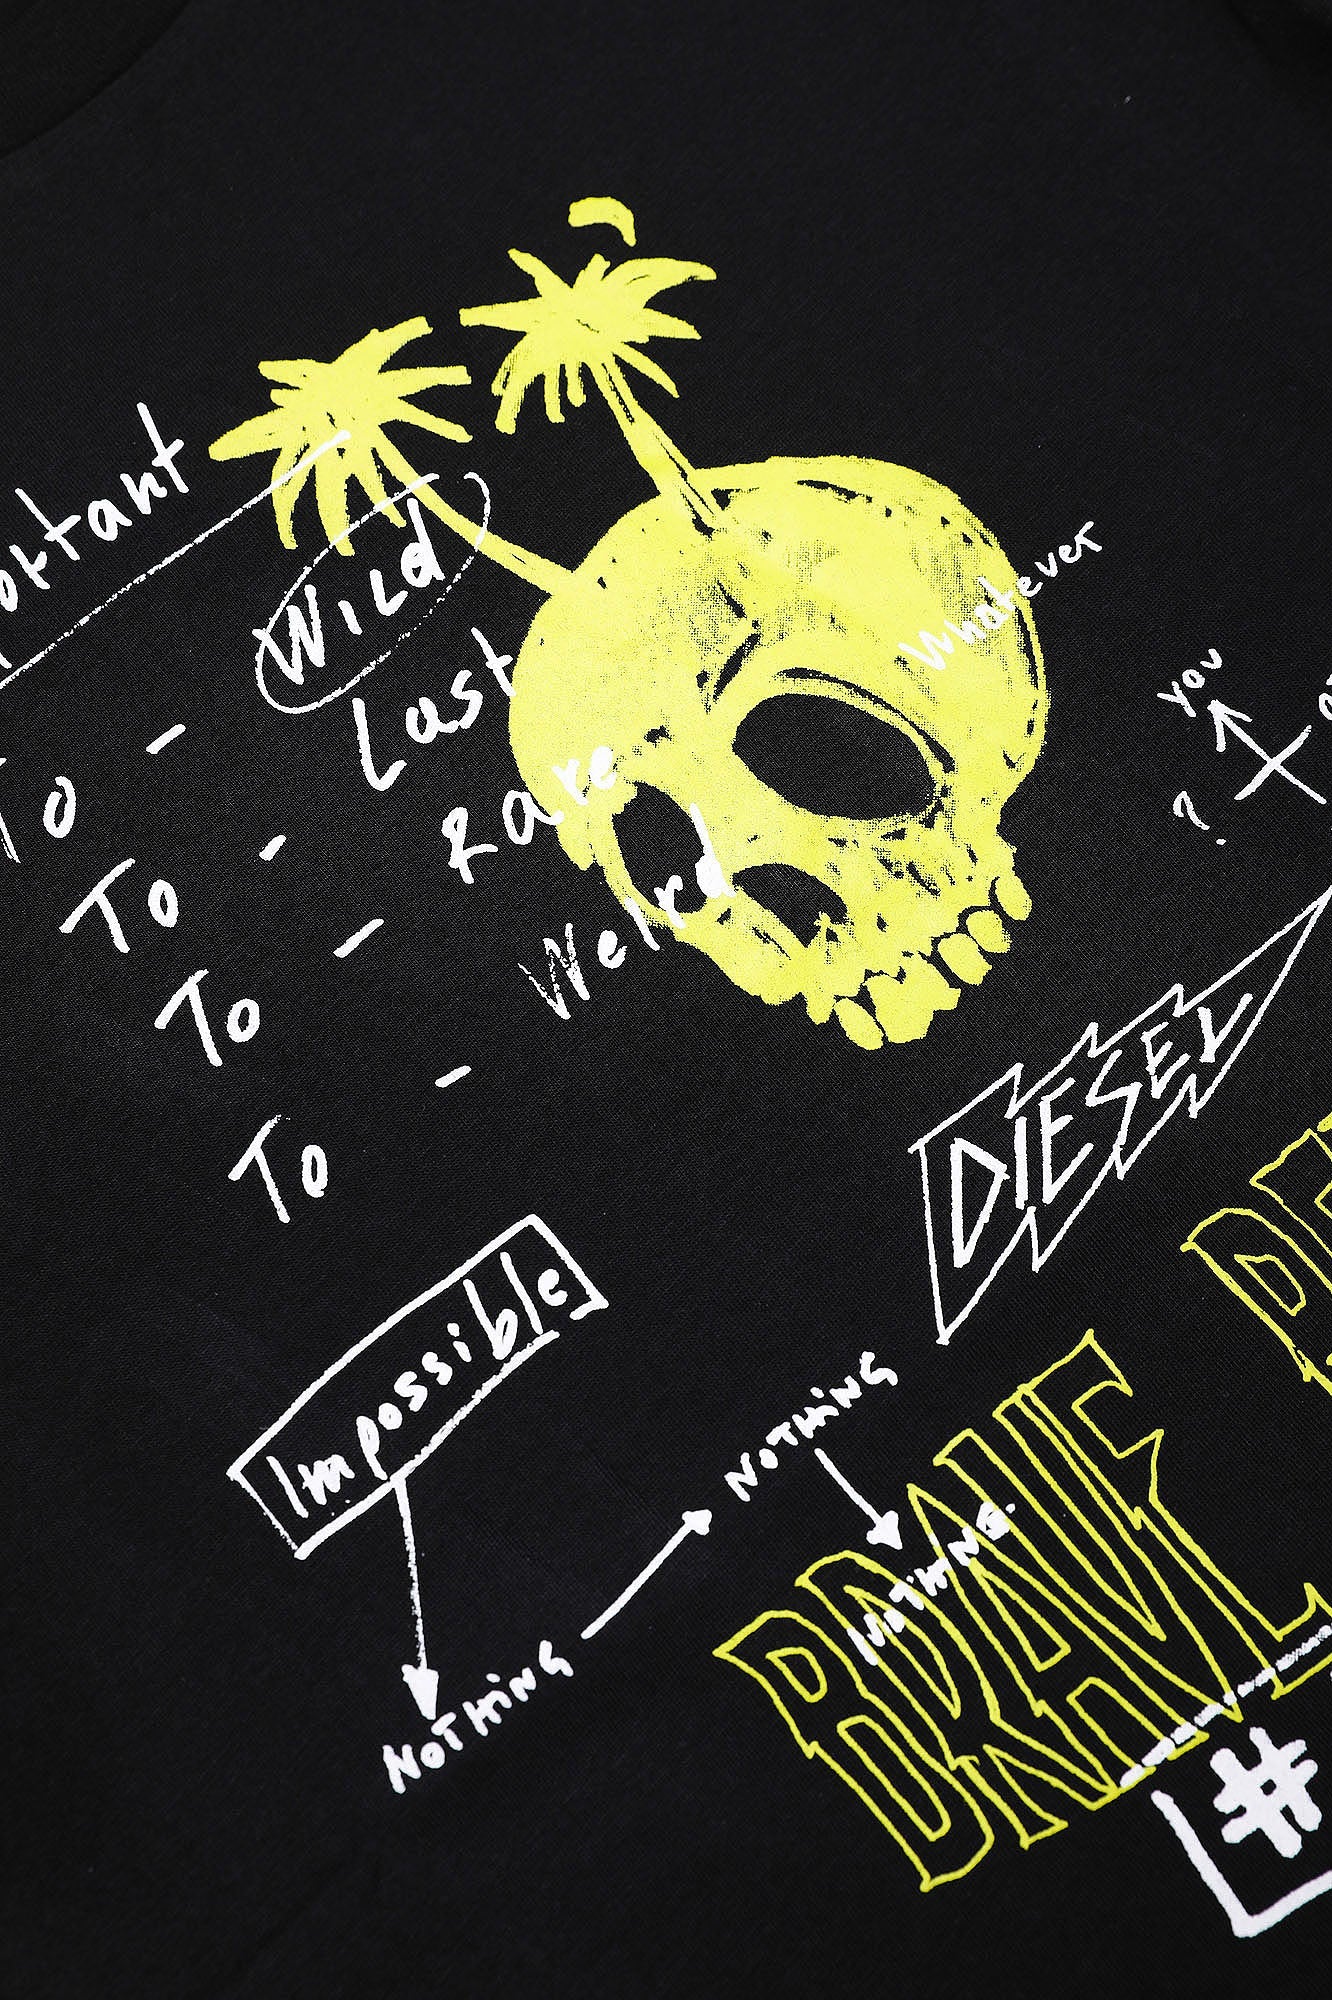 portant
Wild
To - Last
To - Rare
To - Weird
To -
Whatever
you
?
DIESEL
Impossible
NOTHING
NOTHING
NOTHING.
BRAVE
#